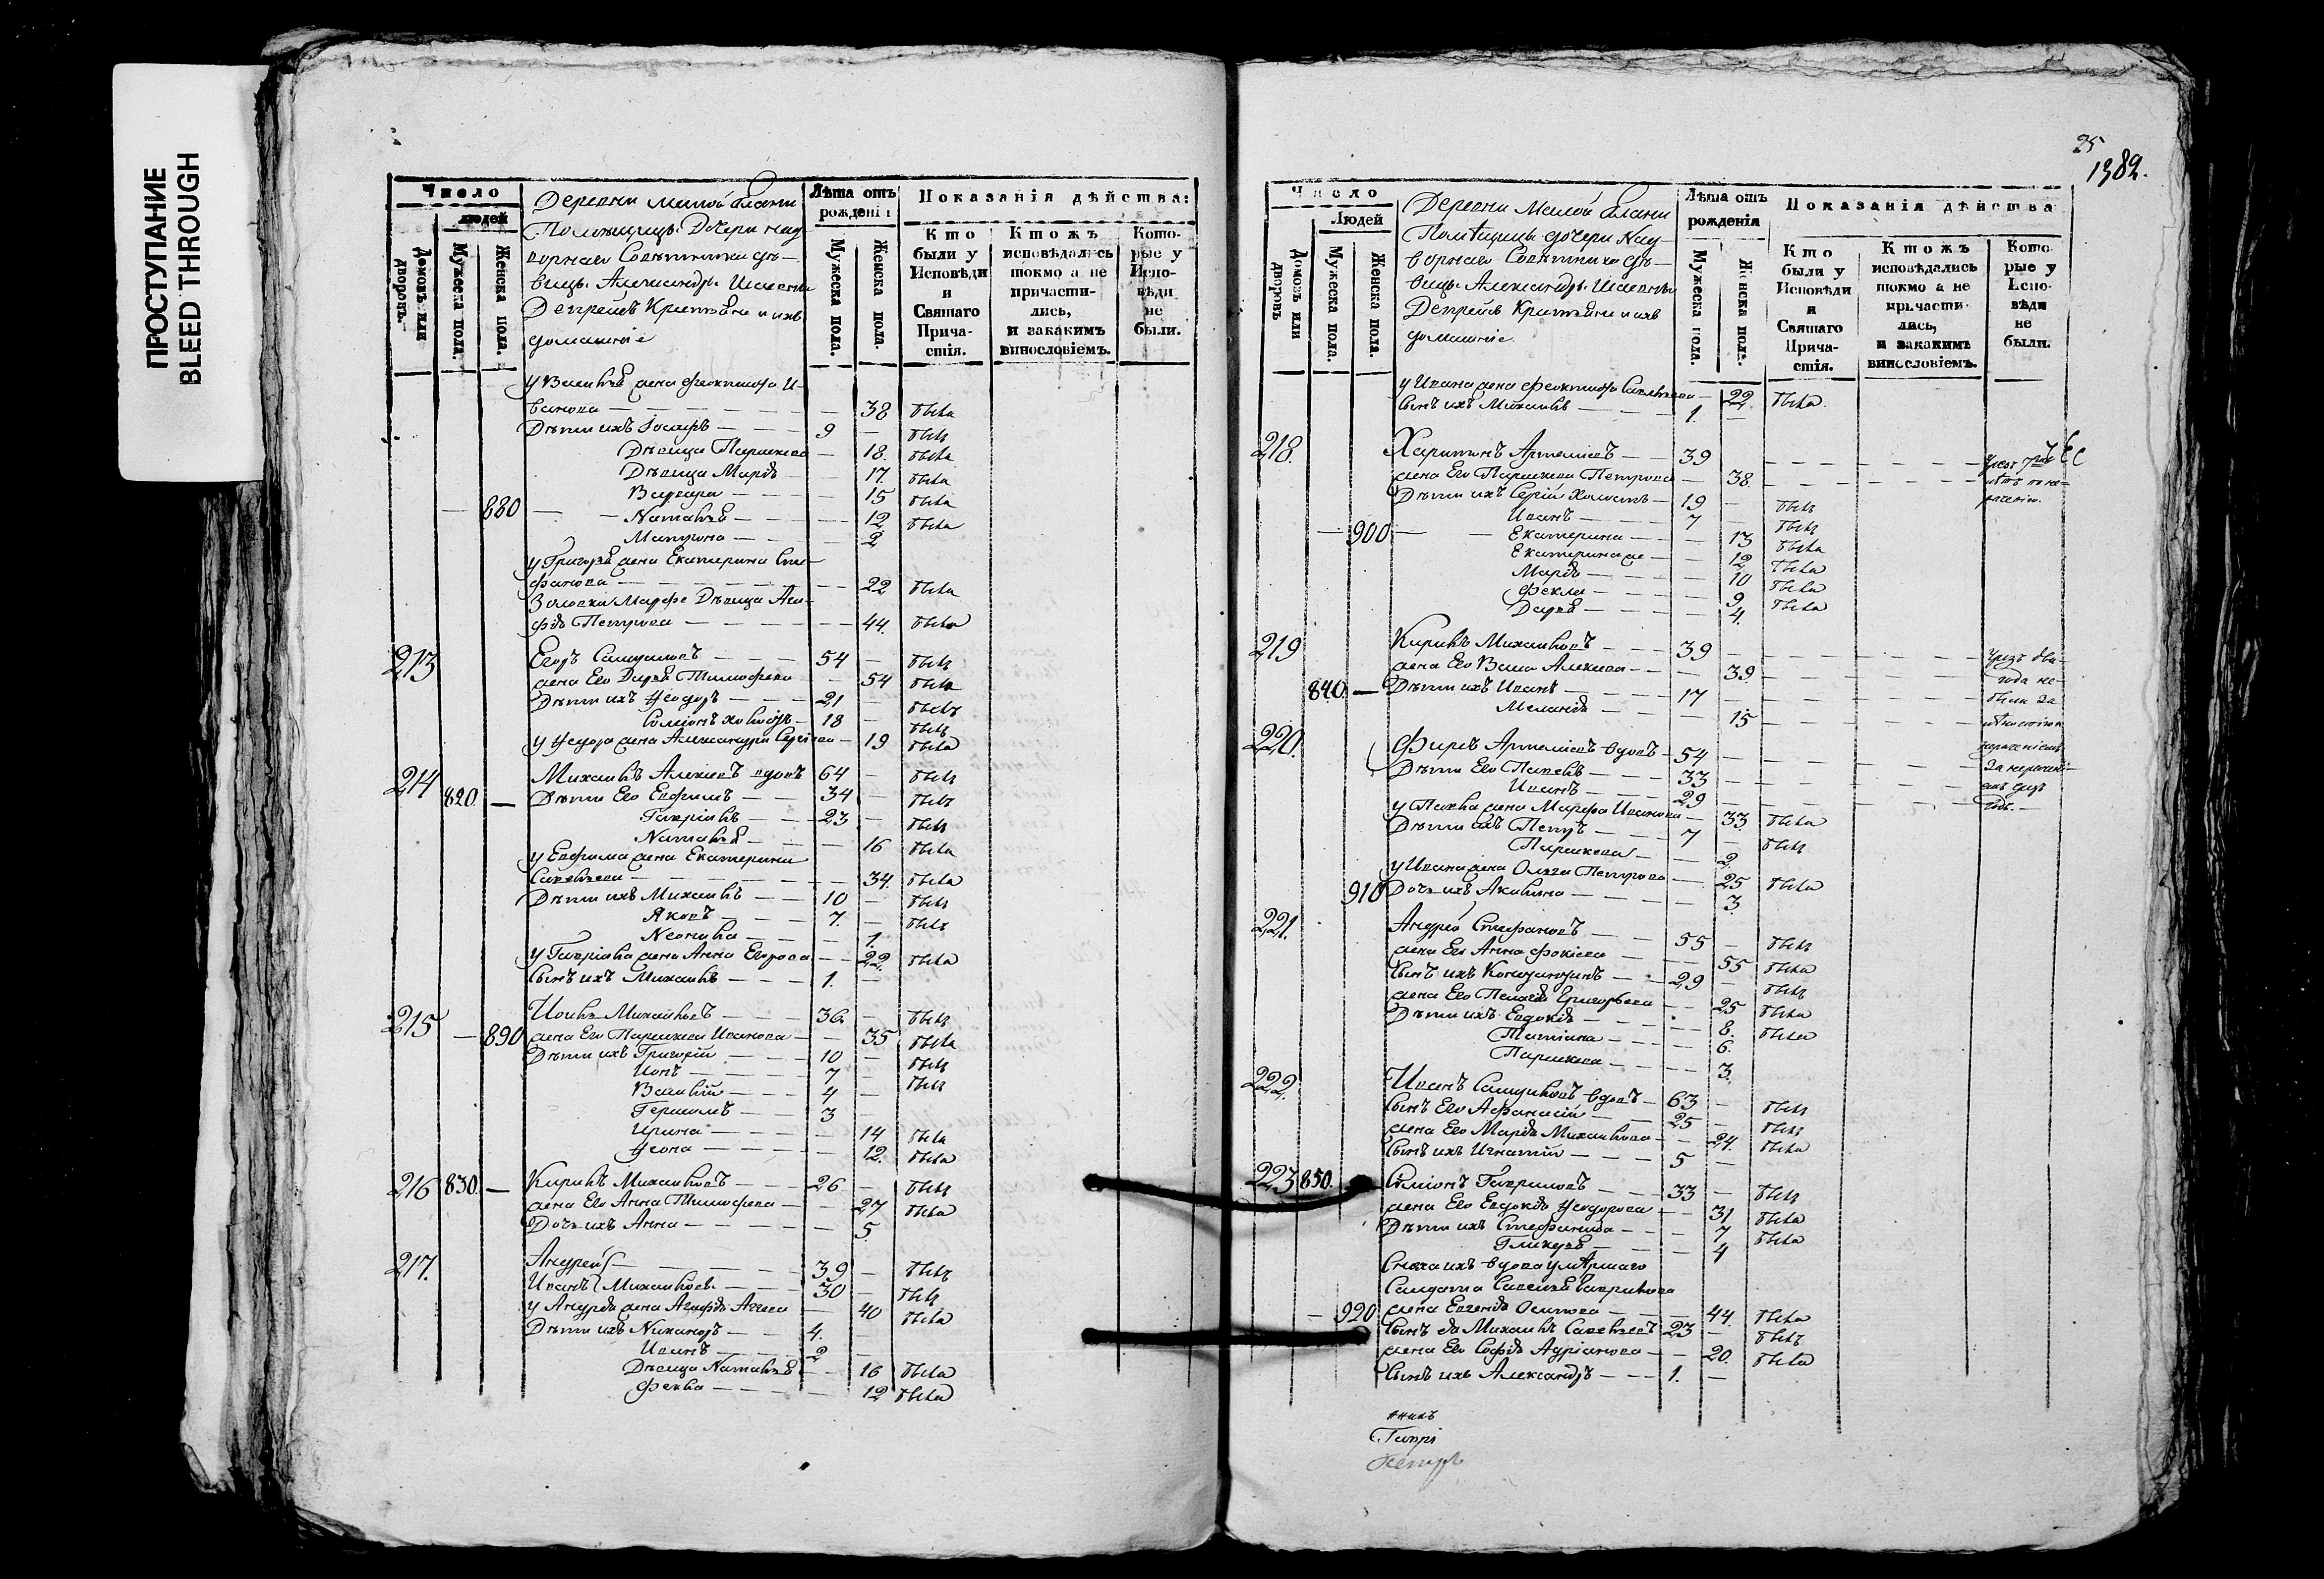 ПРОСТУПАНИЕ
BLEED THROUGH
Число
людей
Домовъ или дворовъ.
Мужеска пола.
Женска пола.
Деревни Малой Елани
Помѣщицы Дочери над-
ворнаго Совѣтника дѣ-
вицы Александры
Крестьяне и ихъ
домашніе
Лѣта отъ рожденія
Мужеска пола.
Женска пола.
Показанія дѣйства:
Кто были у Исповѣди и Святаго Причастія.
Ктожъ исповѣдались токмо а не причастились, и закакимъ винословіемъ.
Которые у Исповѣди не были.
у Василья жена Феоктиста И-
ванова — — 38 была
Дѣти ихъ Іосафъ — 9 — былъ
Дѣвица Параскева — 18. была
Дѣвица Марѳа — 17. была
Варвара — 15 была
880 — Наталья — 12 была
Матрона — 2
у Григорья жена Екатерина Сте-
фанова — 22 была
Дѣвица Ага-
фія Петрова — 44. была
213 Егоръ Самуиловъ — 54 — былъ
жена Его Дарья Тимофеева — 54 была
Дѣти ихъ Ѳеодоръ — 21 — былъ
Симіонъ холостъ — 18 — былъ
у Ѳеодора жена Александра Сергіева — 19 была
214 Михаилъ Алексіевъ вдовъ 64 — былъ
820. — Дѣти Его Евфимъ — 34 — былъ
Гавріилъ — 23 — былъ
Наталья — 16 была
у Евфима жена Екатерина
Савельева — 34. была
Дѣти ихъ Михаилъ — 10 — былъ
Яковъ — 7. — былъ
Неонила — 1.
у Гавріила жена Анна Егорова — 22. была
Сынъ ихъ Михаилъ — 1. —
215 Михайловъ — 36. — былъ
890 жена Его Параскева Иванова — 35 была
Дѣти ихъ Григорій — 10 — былъ
Іонъ — 7 — былъ
Василій — 4 —
3
Ирина — 14 была
12. была
216 830. — Кирилъ Михайловъ — 26 — былъ
жена Его Анна Тимофеева — 27 была
Дочь ихъ Анна — 5.
217. Андрей — 39 — былъ
Иванъ Михайловы — 30 — былъ
у Андрея жена Агафія — 40 была
Дѣти ихъ Никаноръ — 4. —
Иванъ — 2 —
Дѣвица Наталья — 16 была
Фекла — 12 была
25
1382.
Число
Людей
Домовъ или дворовъ
Мужеска пола.
Женска пола.
Деревни Малой Елани
Помѣщицы дочери Над-
ворнаго Совѣтника дѣ-
вицы Александры
Крестьяне и ихъ
домашніе.
Лѣта отъ рожденія
Мужеска пола.
Женска пола.
Показанія дѣйства
Кто были у Исповѣди и Святаго Причастія.
Ктожъ исповѣдались токмо а не причастились, и закакимъ винословіемъ.
Которые у Исповѣди не были.
у Ивана жена Феоктиста Савельева — 22 была.
Сынъ ихъ Михаилъ — 1. —
218. Харитонъ Артеміевъ — 39
жена Его Параскева Петрова — 38.
Дѣти ихъ Сергій холостъ — 19 — былъ
Иванъ — 7 — былъ
900 — Екатерина — 13 была
Екатерина — 12 была
Марѳа — 10 была
Фекла — 9 была
Дарья — 4.
219 Кирилъ Михайловъ — 39
жена Его Васса Алексіева — 39.
840. — Дѣти ихъ Иванъ — 17
Меланія — 15
220. Фирсъ Артеміевъ вдовъ — 54
Дѣти Его Павелъ — 33
Иванъ — 29
у Павла жена Марфа Иванова — 33 была
Дѣти ихъ Петръ — 7 — былъ
Параскева — 2
у Ивана жена Ольга Петрова — 25 была
910 Дочь ихъ Акилина — 3.
221. Андрей Стефановъ — 55 — былъ
жена Его Анна Фокіева — 55 была
Сынъ ихъ — 29 — былъ
жена Его Пелагія Григорьева — 25 была
Дѣти ихъ Евдокія — 8. была
Татіана — 6.
Параскева — 3.
222. Иванъ Самуиловъ вдовъ — 63 — былъ
Сынъ Его Афанасій — 25 — былъ
жена Его Марѳа Михайлова — 24. была
Сынъ ихъ Игнатій — 5 —
223 850. Симіонъ Гавриловъ — 33 — былъ
жена Его Евдокія Ѳеодорова — 31 была
Дѣти ихъ Стефанида — 7 была
Гликерья — 4
Сноха ихъ вдова умершаго
Солдата Савелья Гаврилова
920 жена Евгенія Осипова — 44. была
Сынъ ея Михаилъ Савельевъ 23 — былъ
жена Его Софія Адріанова — 20. была
Сынъ ихъ Александръ — 1. —
Гаврі
Петръ